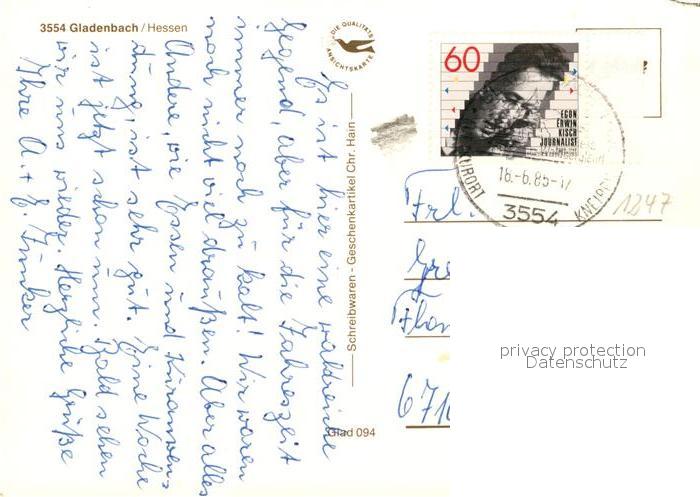 3554 Gladenbach / Hessen
DIE QUALITÄTS
ANSICHTSKARTE
Es ist hier eine waldreiche
Gegend, aber für die Jahreszeit
immer noch zu kalt! Wir waren
noch nicht viel draußen. Aber alles
Andere, wie Essen und Kuranwen-
dung, ist sehr gut. Eine Woche
ist jetzt schon um. Bald sehen
wir uns wieder. Herzliche Grüße
Ihre A. + E. Junker
Schreibwaren - Geschenkartikel Chr. Hain
Glad 094
60
EGON
ERWIN
KISCH
JOURNALIST
18.-6.85-17
3554
KNEIPP
1247
Frl.
671
privacy protection
Datenschutz